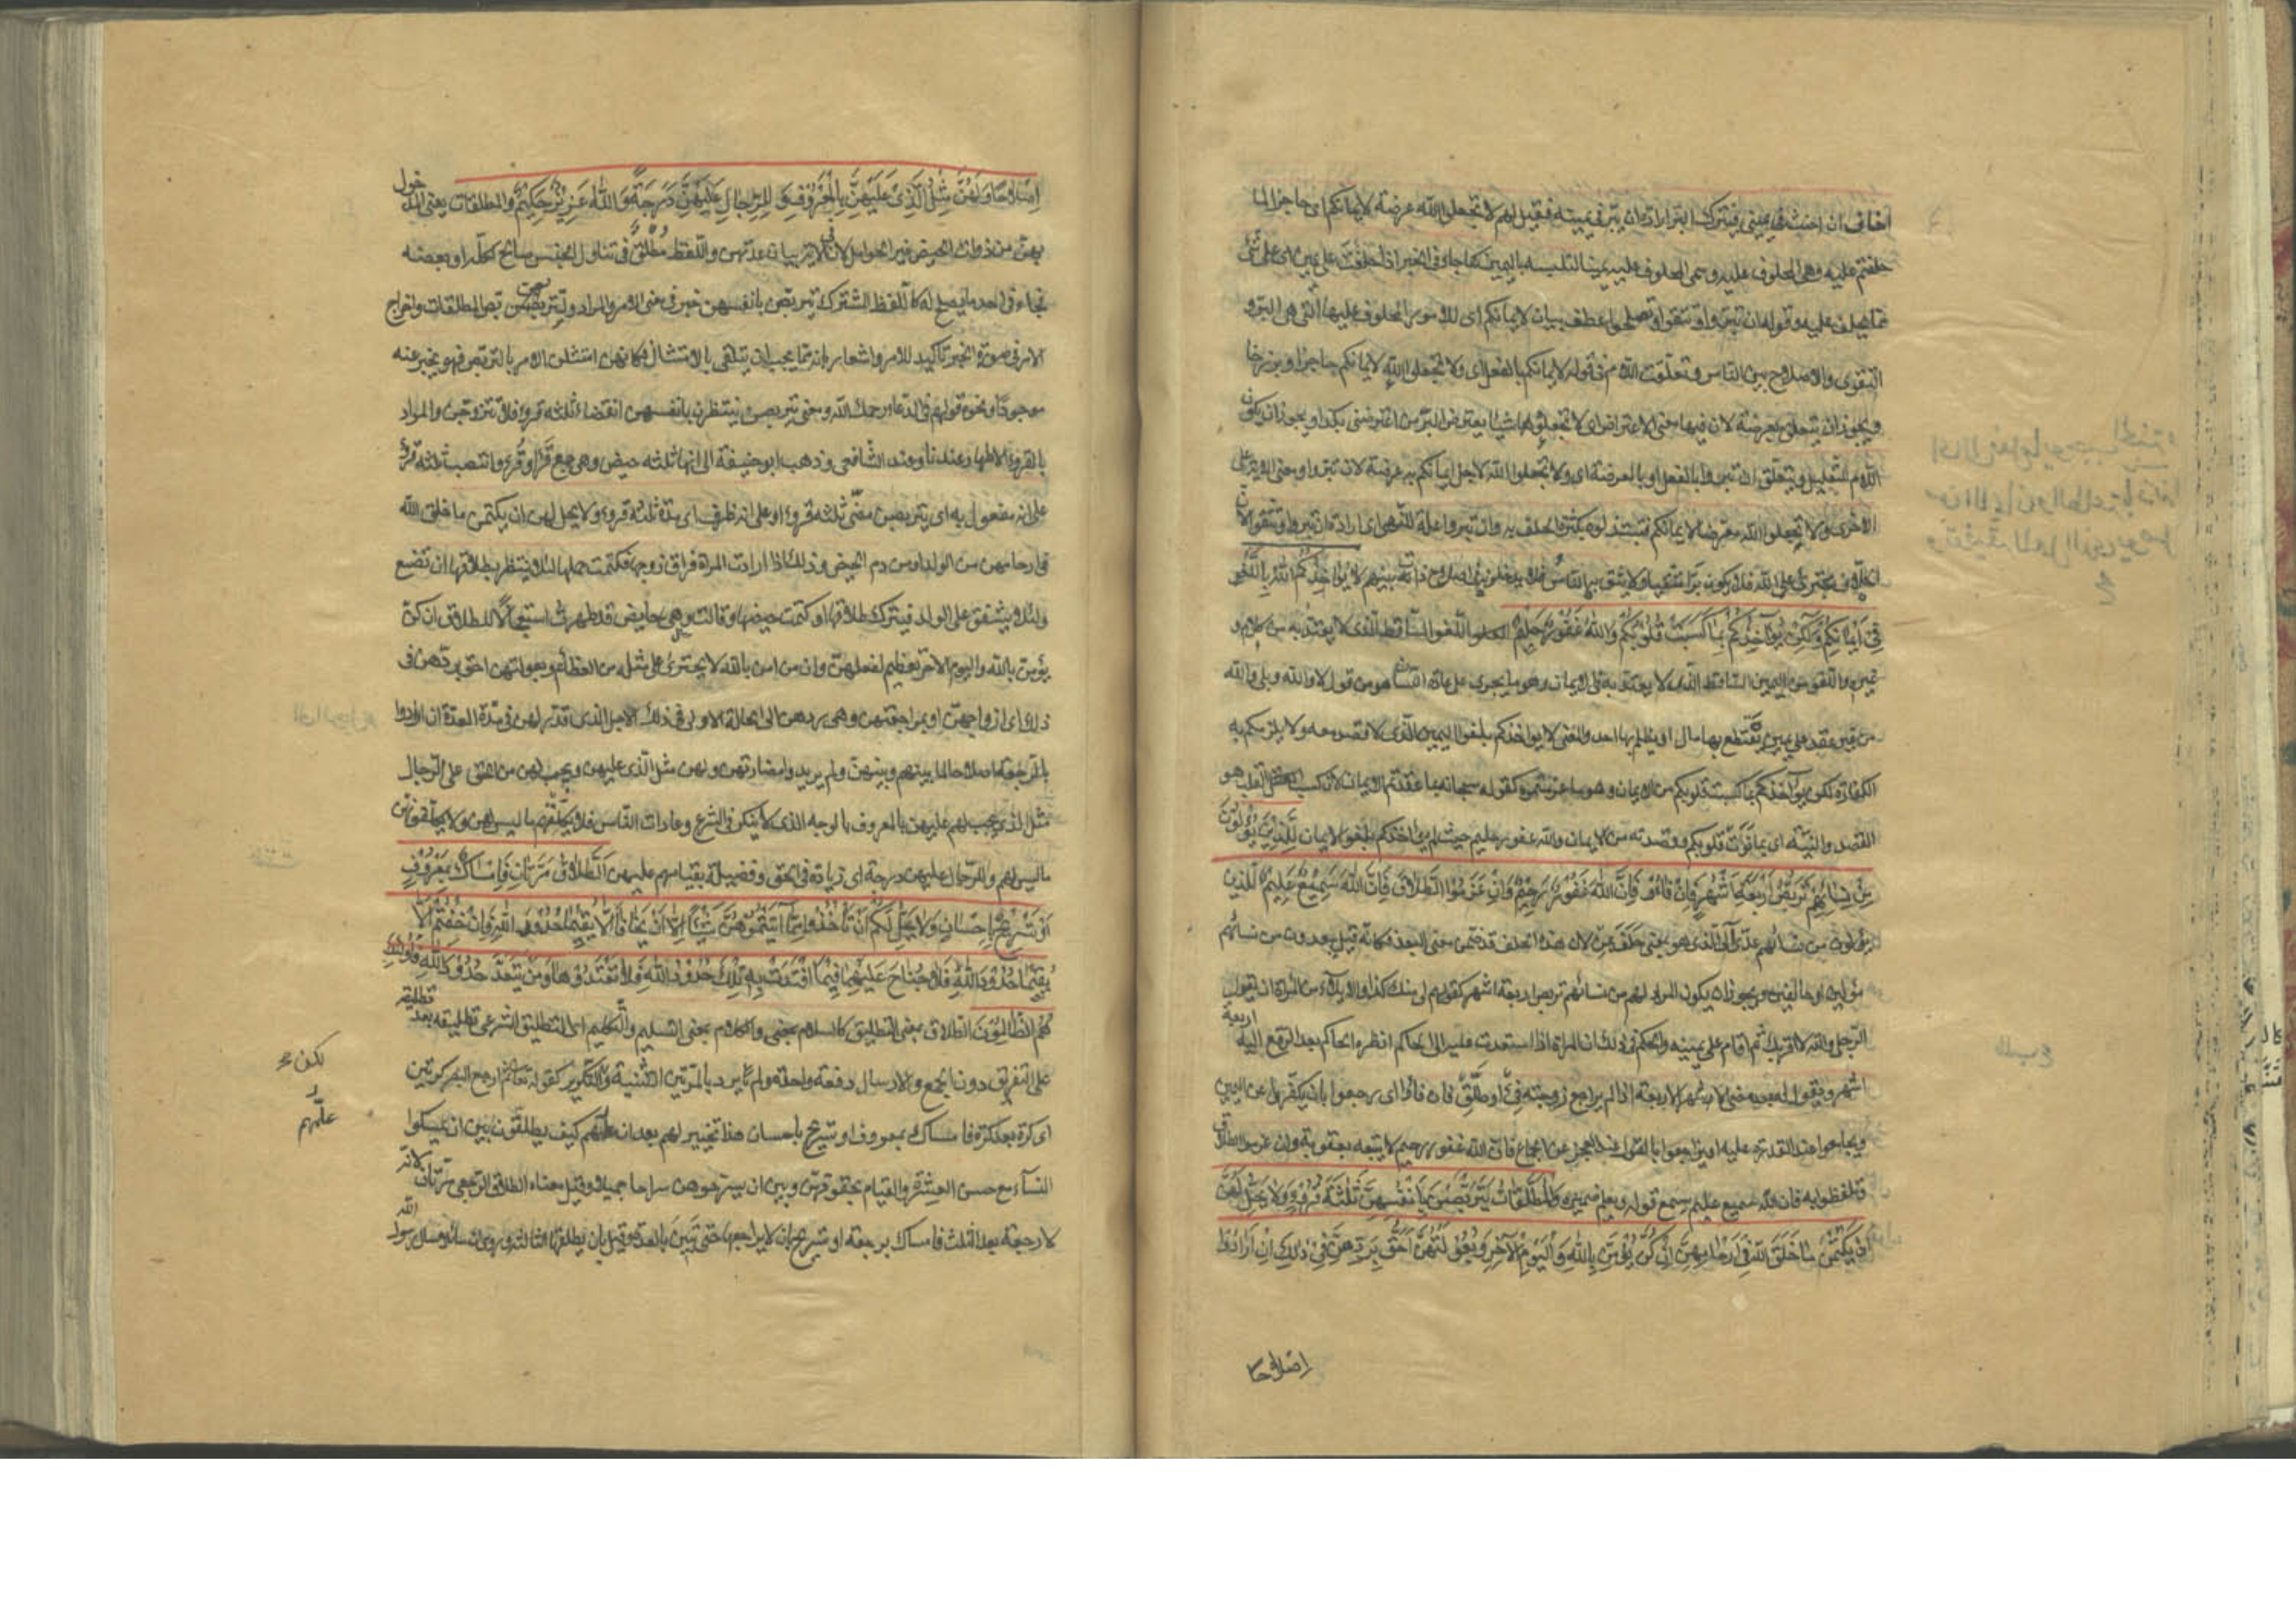 اخاف ان احنث في يميني فيترك البر ارادة ان يبر في يمينه فقيل لهم لا تجعلوا الله عرضة لايمانكم اى حاجزا لما
حلفتم عليه وهى المحلوف عليه وسمى المحلوف عليه يمينا لتلبسه باليمين كما جاء في الخبر اذا حلفت على يمين اى على شئ
مما يحلف عليه وقوله ان تبروا وتتقوا وتصلحوا عطف بيان لايمانكم اى للامور المحلوف عليها التى هى البر و
التقوى والاصلاح بين الناس وتعلقت اللام في قوله لايمانكم بالفعل اى ولا تجعلوا الله لايمانكم حاجزا وبرزخا
ويجوز ان يتعلق بعرضة لان فيها معنى الاعتراض اى لا تجعلوا شيئا يعترض البر من اعترضنى بكذا ويجوز ان يكون
اللام للتعليل ويتعلق ان تبروا بالفعل او بالعرضة اى ولا تجعلوا الله لاجل ايمانكم به عرضة لان تبروا ومعنى الاية على
الاخرى ولا تجعلوا الله معرضا لايمانكم فتبتذلوه بكثرة الحلف به وان تبروا علة للنهى اى ارادة ان تبروا وتتقوا لان
الحلاف مجترئ على الله فلا يكون برا متقيا ولا يثق به الناس فلا يدخلونه في اصلاح ذات بينهم لا يؤاخذكم الله باللغو
في ايمانكم ولكن يؤاخذكم بما كسبت قلوبكم والله غفور حليم اللغو الساقط الذى لا يعتد به من كلام و
غيره واللغو من اليمين الساقط الذى لا يعتد به في الايمان وهو ما يجرى على عادة اللسان من قول لا والله وبلى والله
من غير عقد على يمين يقتطع بها مال او يظلم بها احد والمعنى لا يؤاخذكم بلغو اليمين الذى لا قصد معه ولا يلزمكم به
الكفارة لكن يؤاخذكم بما كسبت قلوبكم من الايمان وهو ما عزمتموه كقوله سبحانه بما عقدتم الايمان لان كسب القلب هو
القصد والنية اى بما نوت قلوبكم وقصدته من الايمان والله غفور حليم حيث لم يؤاخذكم بلغو الايمان للذين يؤلون
من نسائهم تربص اربعة اشهر فان فاءو فان الله غفور رحيم وان عزموا الطلاق فان الله سميع عليم للذين
يؤلون من نسائهم عدى آلى الذى هو بمعنى حلف بمن لان هذا الحلف قد ضمن معنى البعد فكانه قيل يبعدون من نسائهم
مؤلين او حالفين ويجوز ان يكون المراد لهم من نسائهم تربص اربعة اشهر كقولهم لى منك كذا والايلاء من المراة ان يقول
الرجل والله لا اقربك ثم اقام على يمينه والحكم في ذلك ان المراة اذا استعدت عليه الى الحاكم انظره الحاكم بعد الرفع اليه اربعة
اشهر ويقول له بعد مضى الاشهر الاربعة اذا لم يراجع زوجته فئ او طلق فان فاؤا اى رجعوا بان يكفر عن اليمين
ويجامعوا عند القدرة عليه او يراجعوا بالقول عند العجز عن الجماع فان الله غفور رحيم لا يتبعه بعقوبة وان عزموا الطلاق
وتلفظوا به فان الله سميع عليم يسمع قوله ويعلم ضميره والمطلقات يتربصن بانفسهن ثلثة قروء ولا يحل لهن
ان يكتمن ما خلق الله في ارحامهن ان كن يؤمن بالله واليوم الآخر وبعولتهن احق بردهن في ذلك ان ارادوا
اصلاحا
اصلاحا ولهن مثل الذى عليهن بالمعروف وللرجال عليهن درجة والله عزيز حكيم والمطلقات يعنى المدخول
بهن من ذوات الحيض غير الحوامل لان في الاية بيان عدتهن واللفظ مطلق في تناول الجنس صالح لكله او بعضه
فجاء في احد ما يصلح له كاللفظ المشترك يتربصن بانفسهن خبر في معنى الامر والمراد وليتربص المطلقات واخراج
الامر في صورة الخبر تاكيد للامر واشعار بانه مما يجب ان يتلقى بالامتثال فكانهن امتثلن الامر بالتربص فهو يخبر عنه
موجودا ونحوه قولهم في الدعاء رحمك الله ومعنى يتربصن ينتظرن بانفسهن انقضاء ثلثة قروء فلا يتزوجن والمراد
بالقروء الاطهار عندنا وعند الشافعى وذهب ابو حنيفة الى انها ثلثه حيض وهى جمع قرء او قرء وانتصب ثلثه قروء
على انه مفعول به اى يتربصن مضى ثلثه قروء او على انه ظرف اى مدة ثلثه قروء ولا يحل لهن ان يكتمن ما خلق الله
في ارحامهن من الولد او من دم الحيض وذلك اذا ارادت المراة فراق زوجها فكتمت حملها لئلا ينتظر بطلاقها ان تضع
ولئلا يشفق على الولد فيترك طلاقها او كتمت حيضها وقالت وهى حايض قد طهرت استعجالا للطلاق ان كن
يؤمن بالله واليوم الاخر تعظيم لفعلهن وان من امن بالله لا يجترئ على مثله من العظائم وبعولتهن احق بردهن في
ذلك اى ازواجهن اولى بمراجعتهن وهى ردهن الى الحالة الاولى في ذلك الاجل الذى قدر لهن في مدة العدة ان ارادوا
بالمراجعة اصلاحا لما بينهم وبينهن ولم يريدوا مضارتهن ولهن مثل الذى عليهن ويجب لهن من الحق على الرجال
مثل الذى يجب لهم عليهن بالمعروف بالوجه الذى لا ينكر في الشرع وعادات الناس فلا يكلفنهم ما ليس لهن ولا يكلفونهن
ما ليس لهم وللرجال عليهن درجة اى زيادة في الحق وفضيلة بقيامهم عليهن الطلاق مرتان فامساك بمعروف
او تسريح باحسان ولا يحل لكم ان تأخذوا مما آتيتموهن شيئا الا ان يخافا الا يقيما حدود الله فان خفتم الا
يقيما حدود الله فلا جناح عليهما فيما افتدت به تلك حدود الله فلا تعتدوها ومن يتعد حدود الله فاولئك
هم الظالمون الطلاق بمعنى التطليق كالسلام والكلام بمعنى التسليم والتكليم اى التطليق الشرعى تطليقه بعد تطليقه
على التفريق دون الجمع والارسال دفعة واحدة ولم يرد بالمرتين التثنية والتكرير كقوله ثم ارجع البصر كرتين
اى كرة بعد كرة فامساك بمعروف او تسريح باحسان هذا تخيير لهم بعد ان علمهم كيف يطلقون بين ان يمسكوا
النساء مع حسن العشرة والقيام بحقوقهن وبين ان يسرحوهن سراحا جميلا وقيل معناه الطلاق الرجعى مرتان لانه
لا رجعة بعد الثلث فامساك برجعة او تسريح بان لا يراجعها حتى تبين بالعدة وقيل بان يطلقها الثالثة وروى ان سائلا سال رسول الله
علمهم